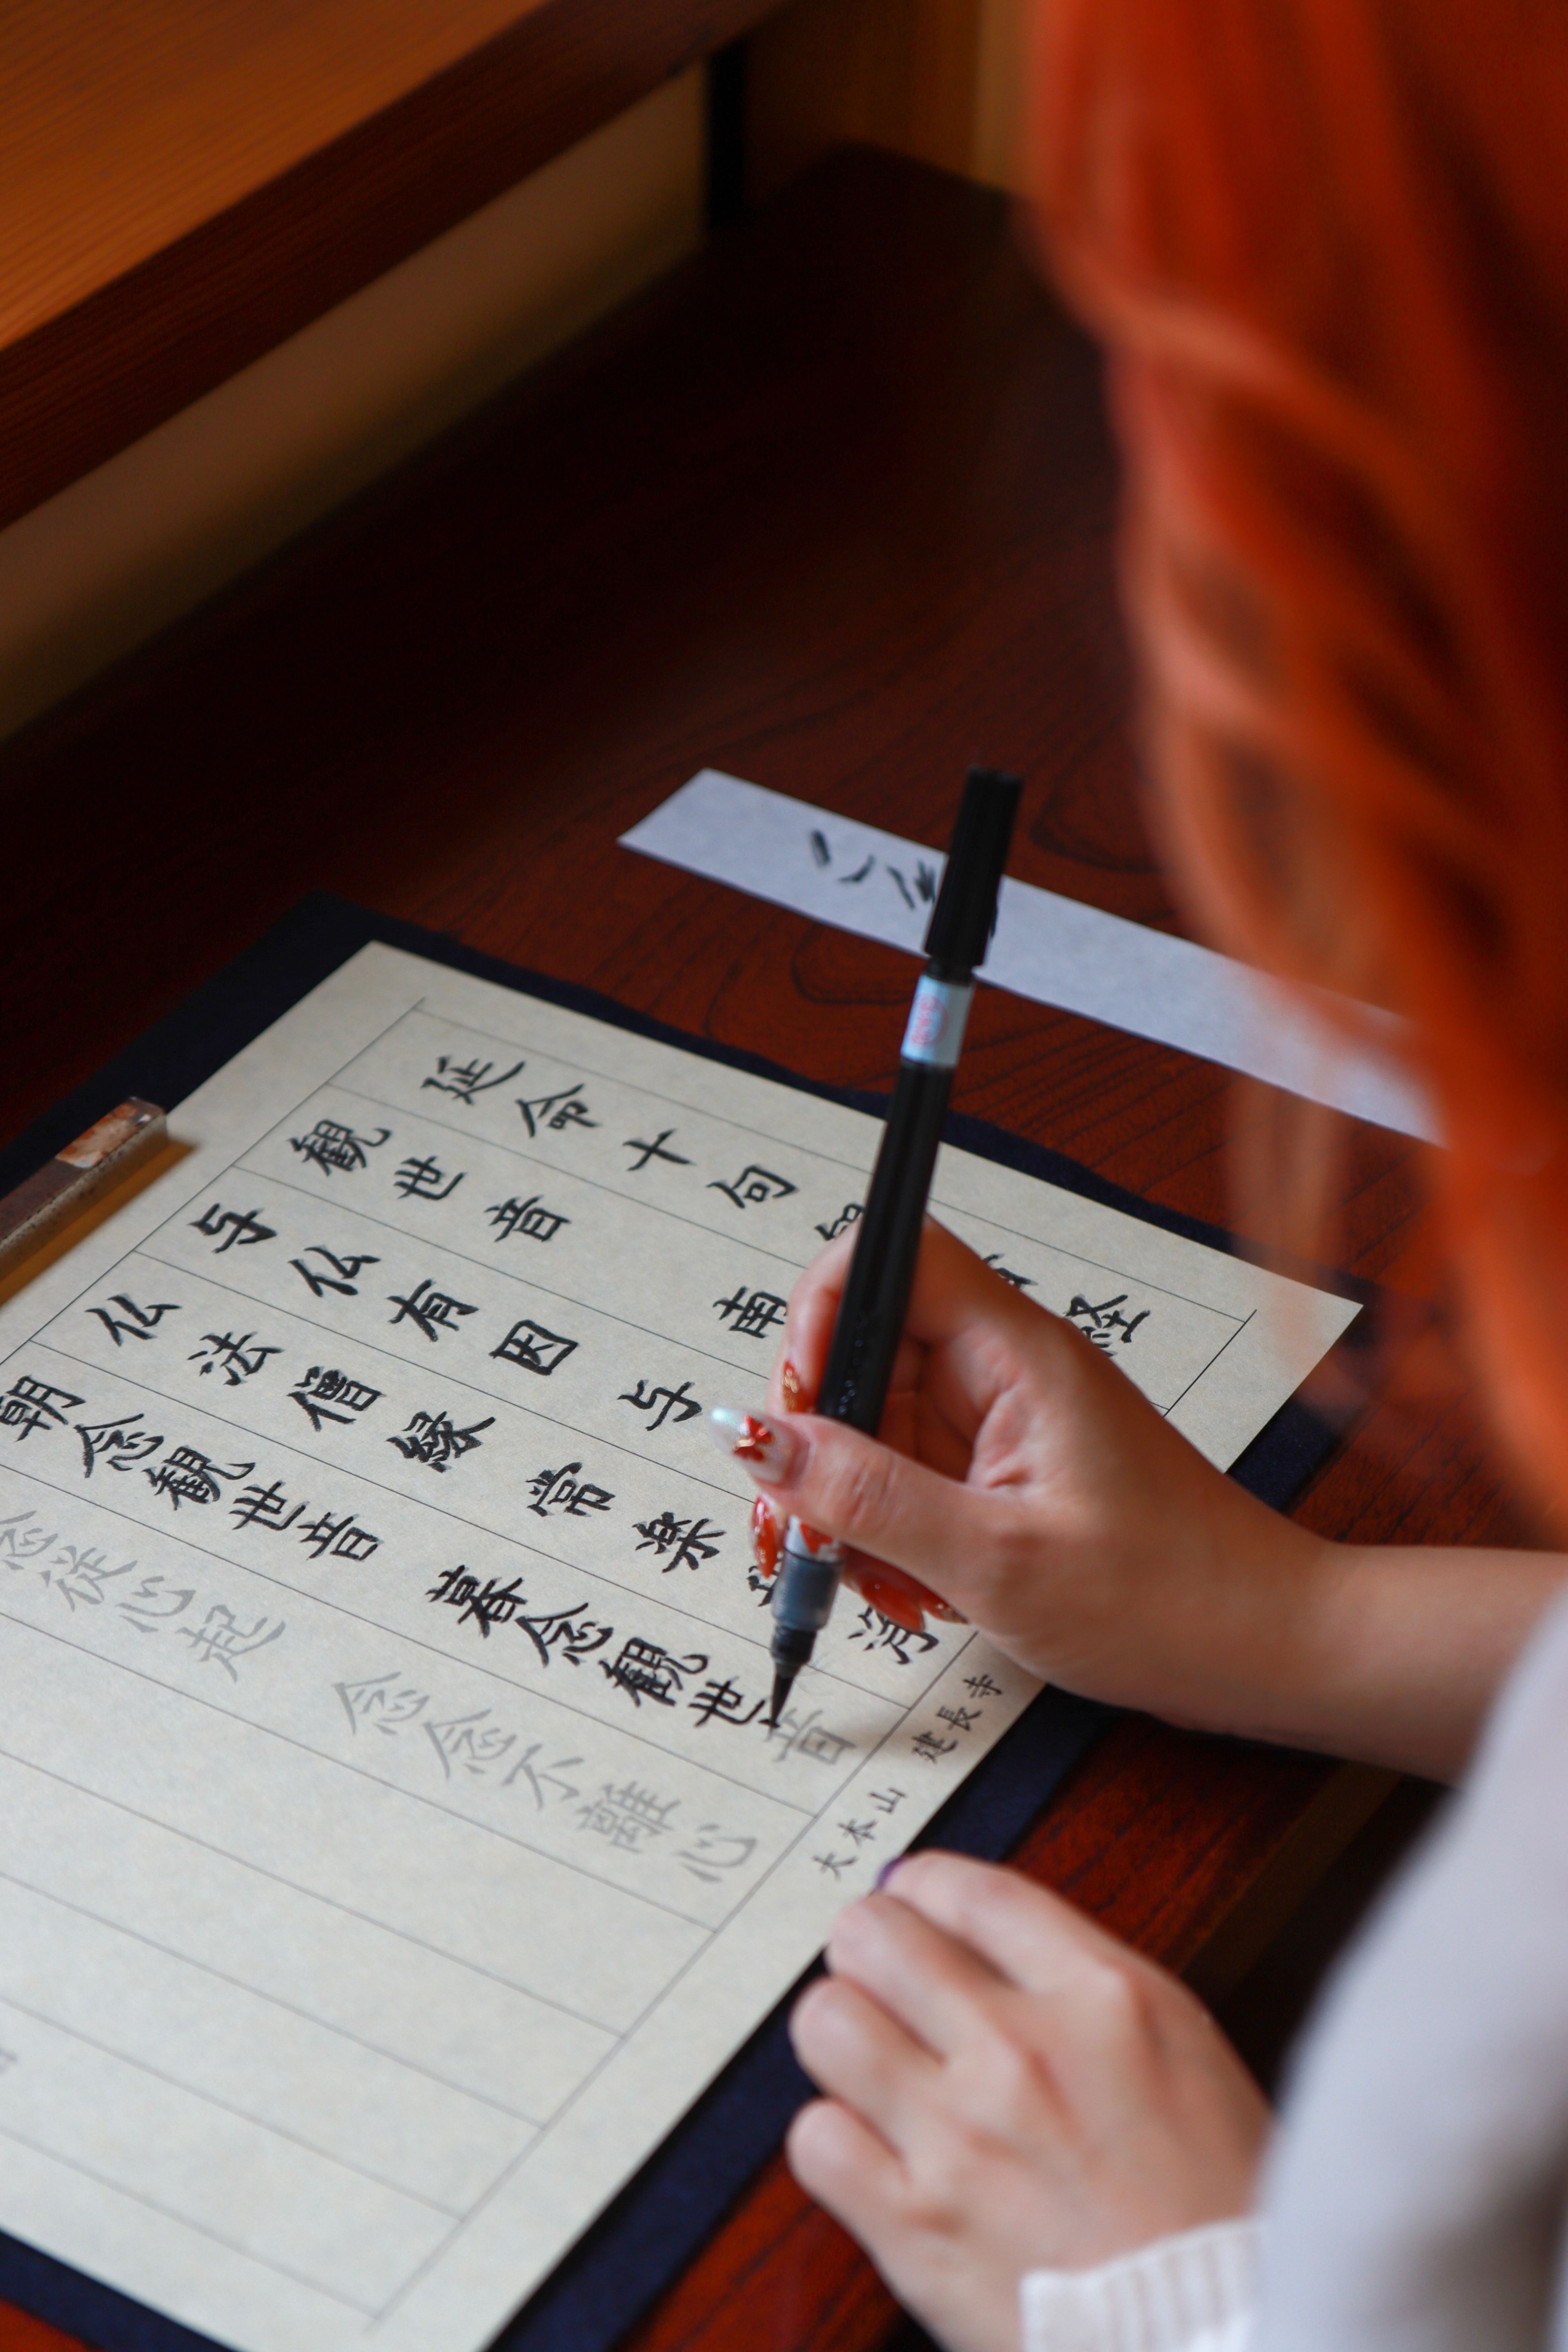 延命十句 経
観世音 南
与仏有因 与
仏法僧縁 常楽 浄
朝念観世音 暮念観世音
念従心起 念念不離心
大本山 建長寺